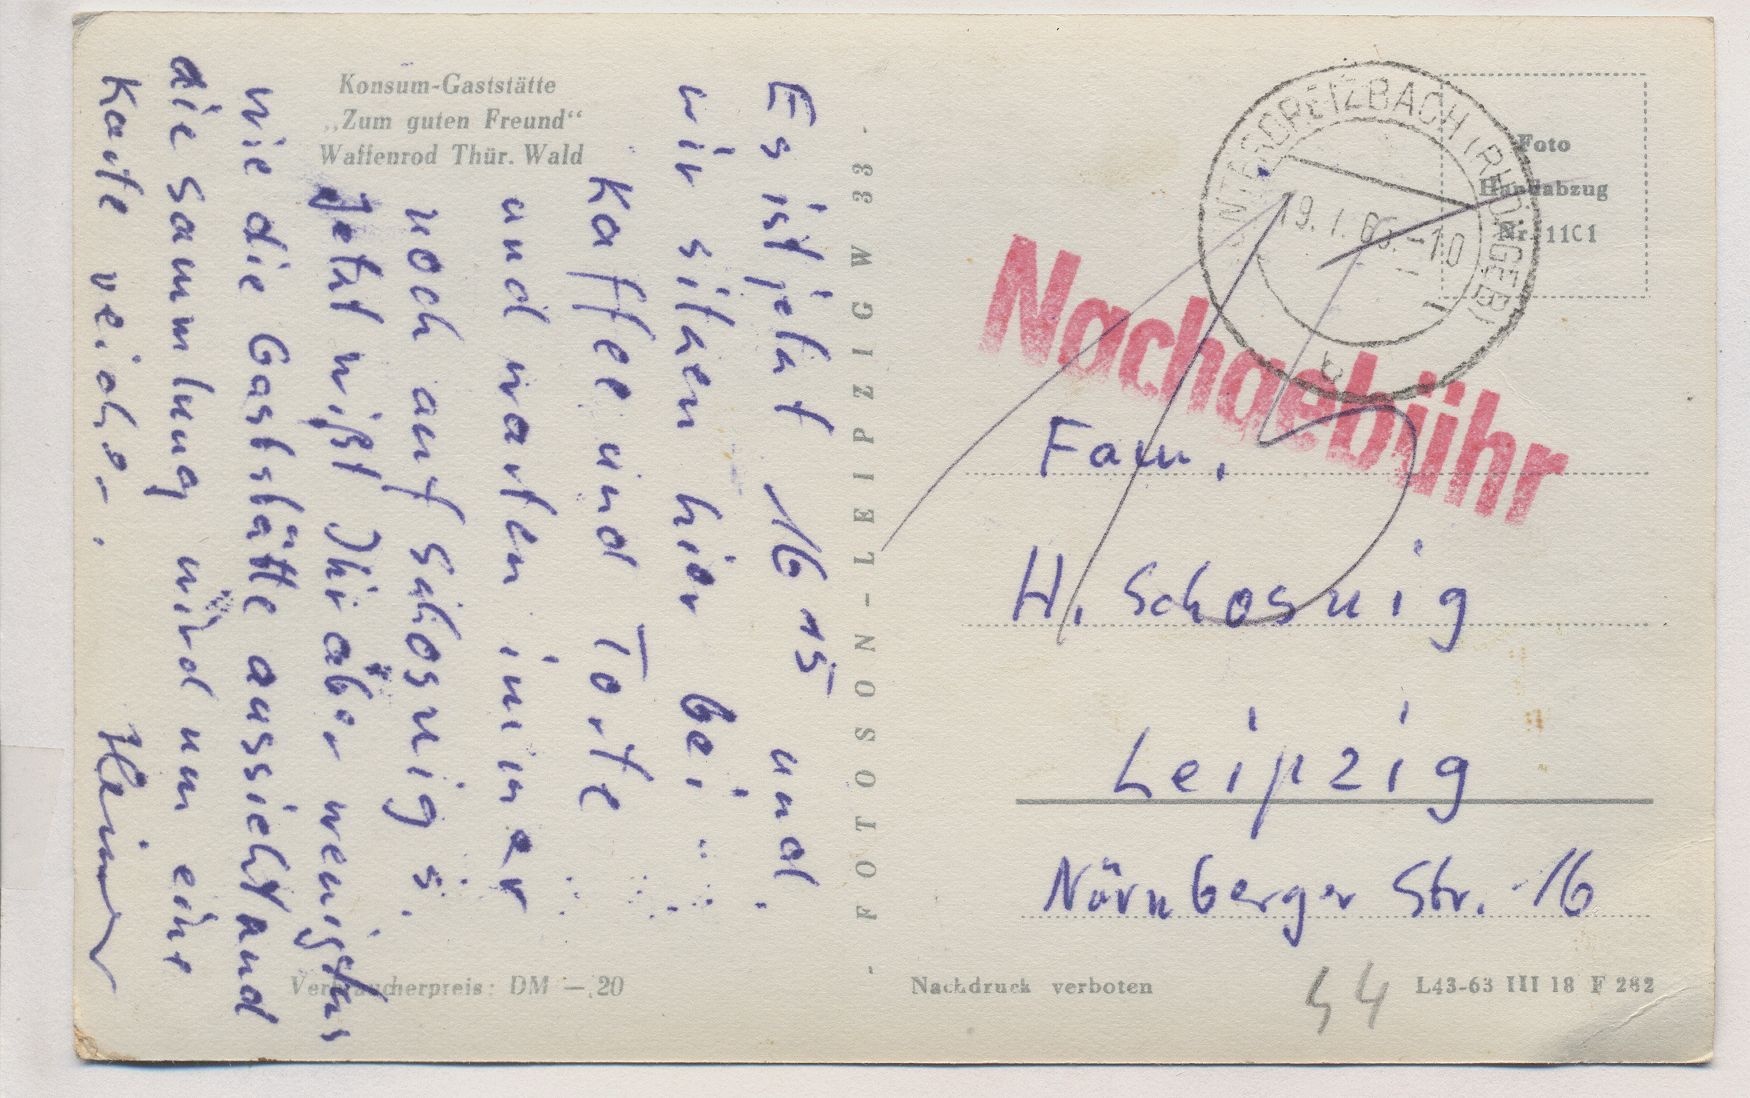 Konsum-Gaststätte
„Zum guten Freund“
Waffenrod Thür. Wald
Es ist jetzt 16 15 und
wir sitzen hier bei
Kaffee und Torte
und warten immer
noch auf Schosnig's.
Jetzt wißt Ihr aber wenigstens
wie die Gaststätte aussieht und
die Sammlung wird um eine
Karte reicher.
Heiner
- FOTOSON-LEIPZIG W 33 -
UNTERBREIZBACH (RHÖNGEB)
19. 1. 66.-10
b
Foto
Handabzug
Nr. 11C1
Nachgebühr
Fam.
H. Schosnig
Leipzig
Nürnberger Str. 16
Verbraucherpreis: DM —,20
Nachdruck verboten
44
L43-63 III 18 F 282